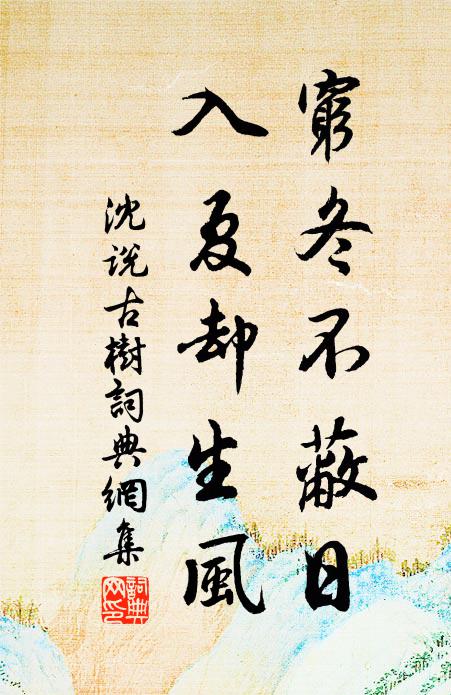 窮冬不蔽日
入夏却生風
沈说古樹詞典網集
詞典